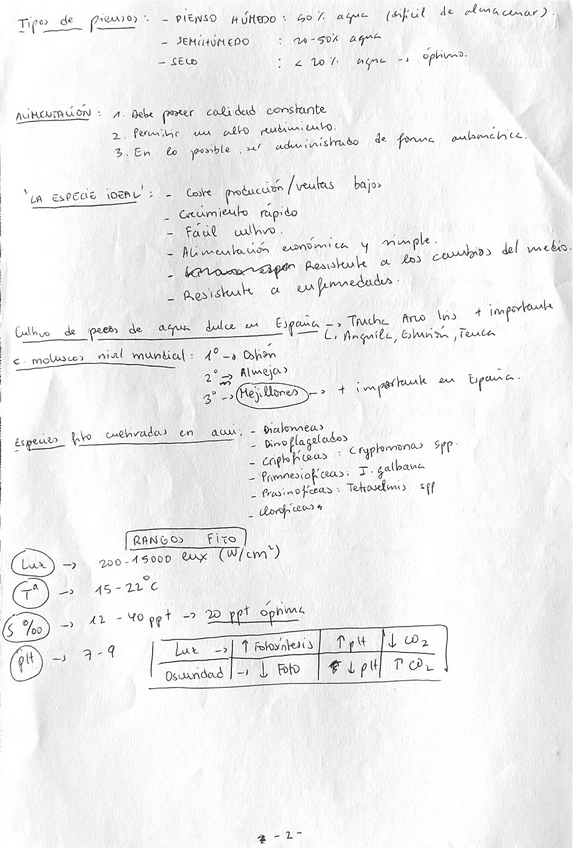 Tipos de piensos: - PIENSO HÚMEDO: 50% agua (difícil de almacenar).
- SEMIHÚMEDO : 20-50% agua
- SECO : < 20% agua → óptimo.
ALIMENTACIÓN: 1. Debe poseer calidad constante
2. Permitir un alto rendimiento.
3. En lo posible, ser administrado de forma automática.
'LA ESPECIE IDEAL': - Coste producción/ventas bajos
- Crecimiento rápido
- Fácil cultivo.
- Alimentación económica y simple.
- Resistente a los cambios del medio.
- Resistente a enfermedades.
Cultivo de peces de agua dulce en España → Trucha Arco Iris + importante
↳ Anguila, Esturión, Tenca
c. moluscos nivel mundial: 1º → Ostión
2º → Almejas
3º → Mejillones → + importante en España.
Especies fito cultivadas en acui: - Diatomeas
- Dinoflagelados
- Criptofíceas: Cryptomonas spp.
- Primnesiofíceas: I. galbana
- Prasinofíceas: Tetraselmis spp
- Clorofíceas
RANGOS FITO
Luz → 200-15000 lux (W/cm²)
Tª → 15-22°C
S ‰ → 12-40 ppt → 20 ppt óptima
pH → 7-9
Luz → ↑ Fotosíntesis ↑ pH ↓ CO2
Oscuridad → ↓ Foto ↓ pH ↑ CO2
- 2 -